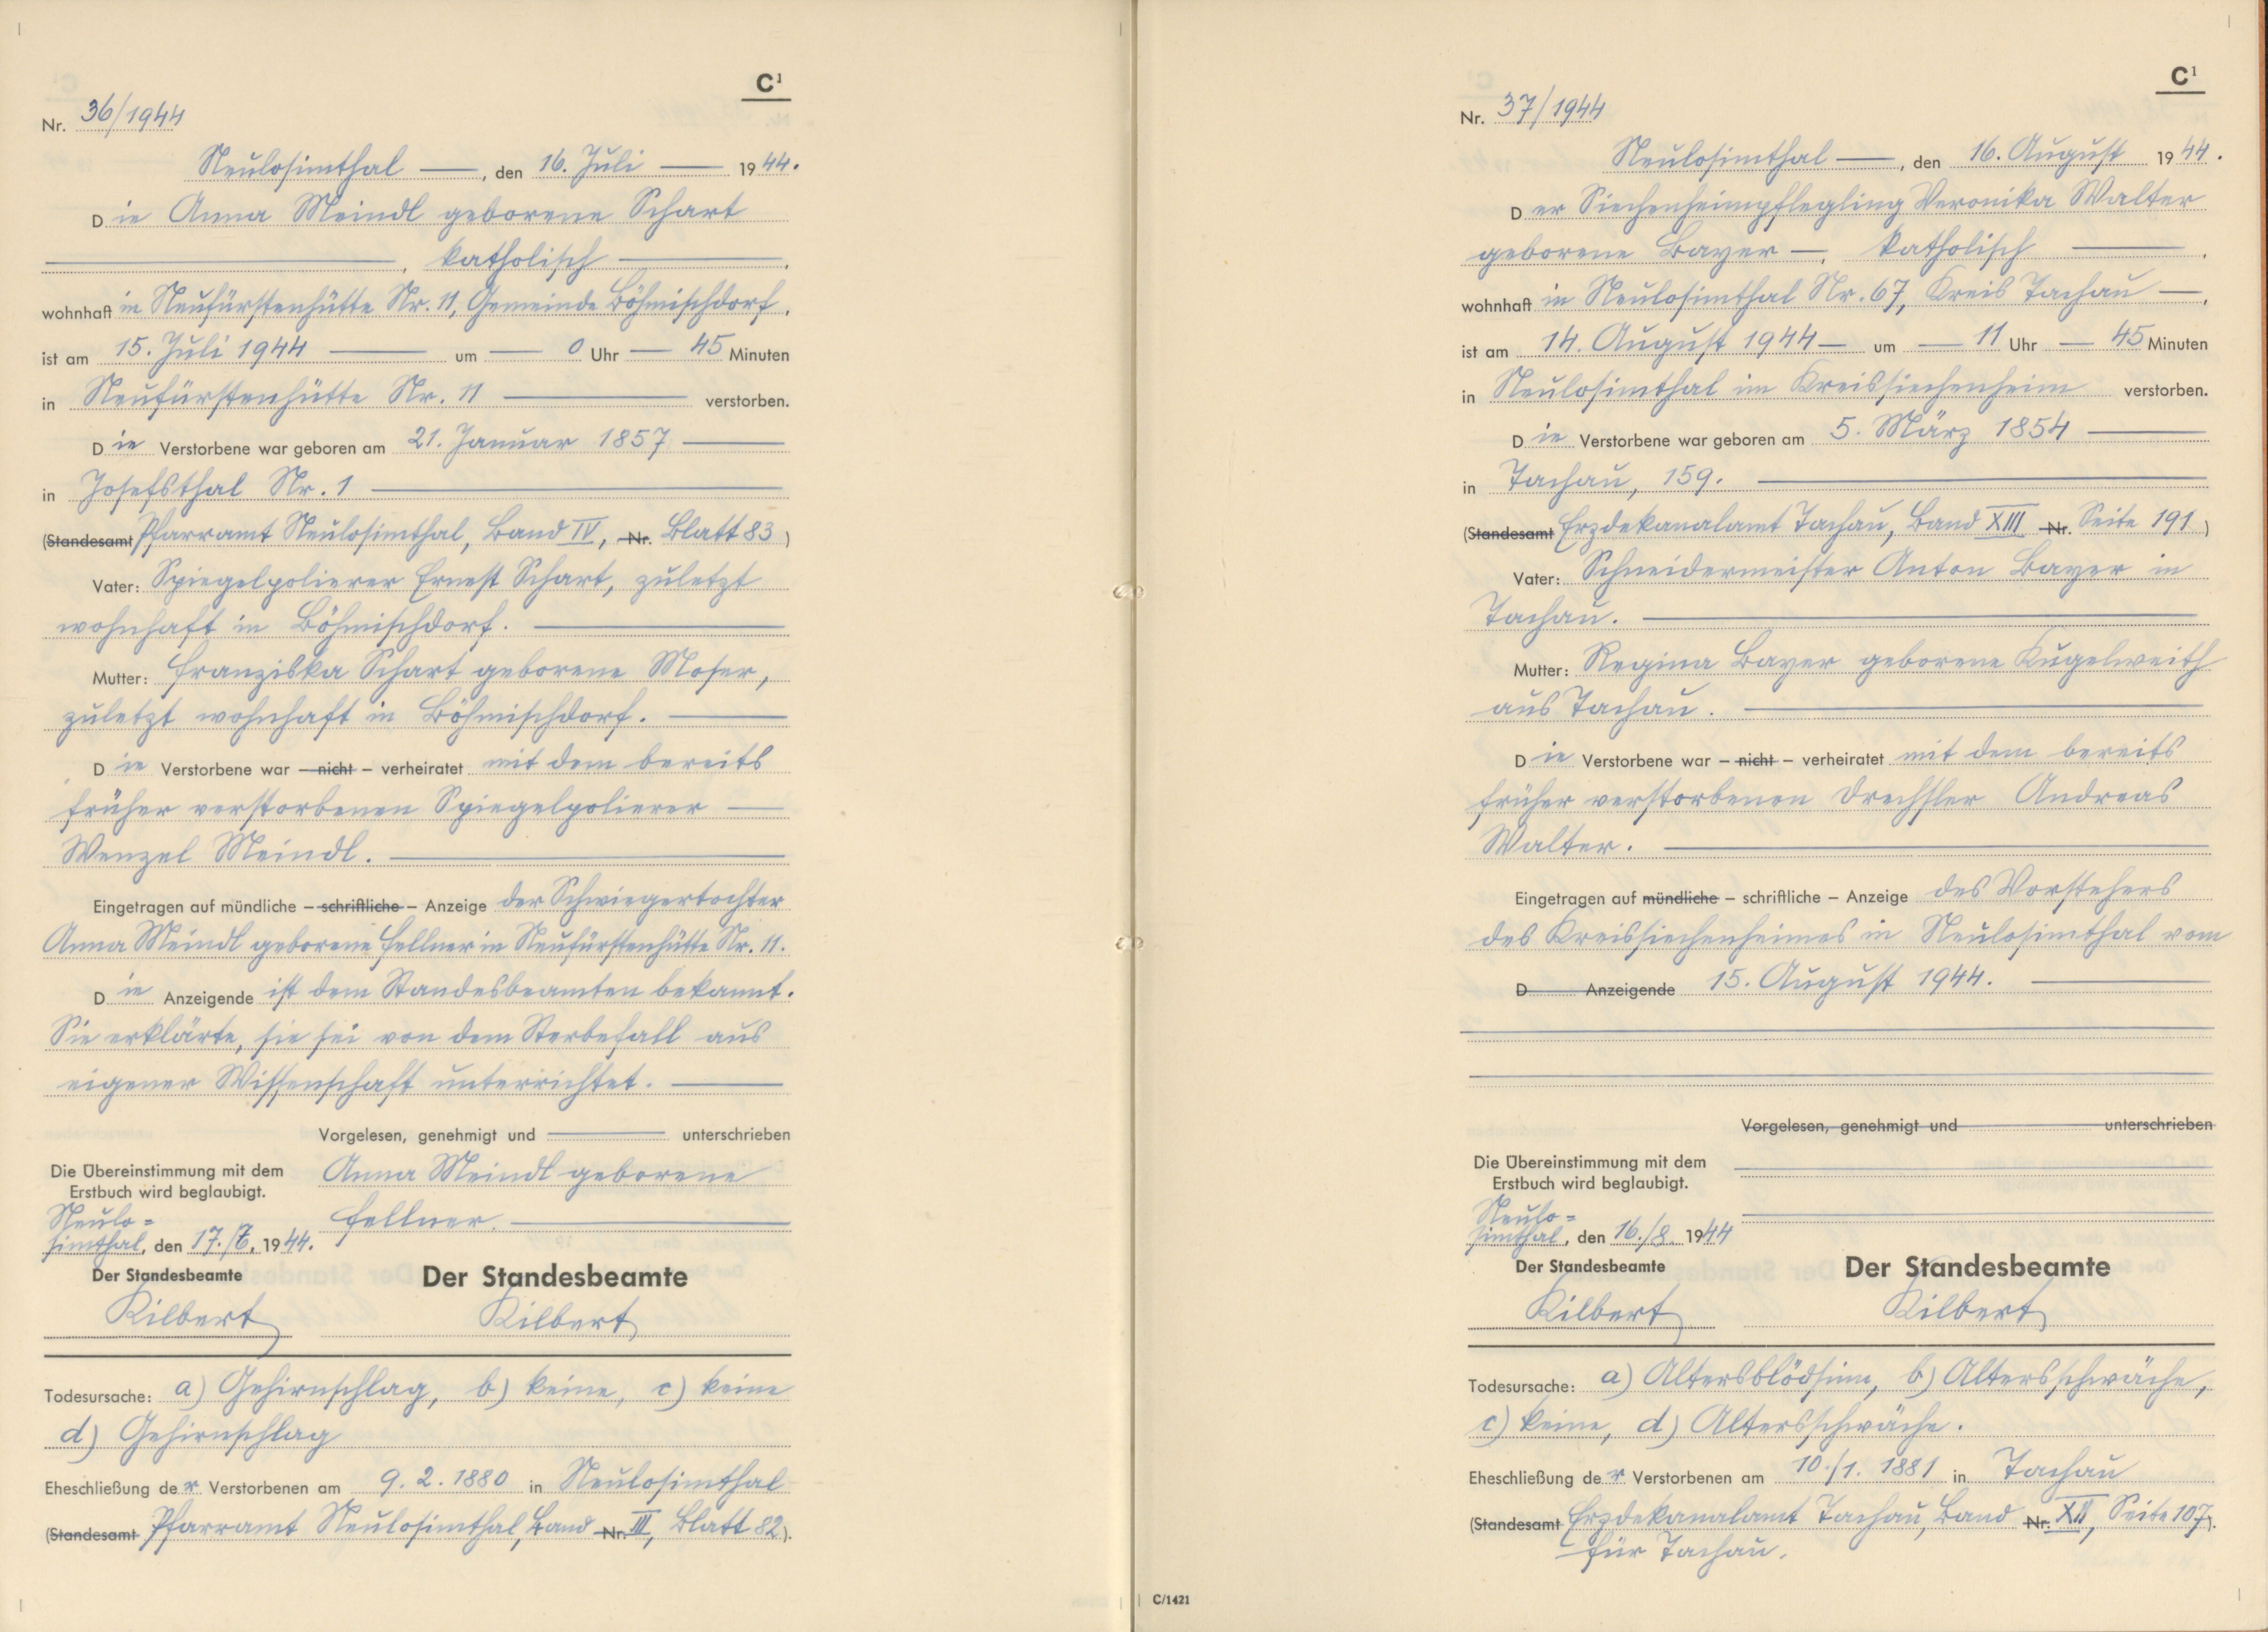 C¹
Nr. 36/1944
Neulosimthal —, den 16. Juli — 1944.
Die Anna Meindl geborene Schart
—, katholisch —,
wohnhaft in Neufürstenhütte Nr. 11, Gemeinde Böhmischdorf,
ist am 15. Juli 1944 — um — 0 Uhr — 45 Minuten
in Neufürstenhütte Nr. 11 — verstorben.
Die Verstorbene war geboren am 21. Januar 1857 —
in Josefsthal Nr. 1 —
(Standesamt Pfarramt Neulosimthal, Band IV, Nr. Blatt 83)
Vater: Spiegelpolierer Ernest Schart, zuletzt
wohnhaft in Böhmischdorf. —
Mutter: Franziska Schart geborene Moser,
zuletzt wohnhaft in Böhmischdorf. —
Die Verstorbene war – nicht – verheiratet mit dem bereits
früher verstorbenen Spiegelpolierer —
Wenzel Meindl. —
Eingetragen auf mündliche – schriftliche – Anzeige der Schwiegertochter
Anna Meindl geborene Fellner in Neufürstenhütte Nr. 11.
Die Anzeigende ist dem Standesbeamten bekannt.
Sie erklärte, sie sei von dem Sterbefall aus
eigener Wissenschaft unterrichtet. —
Vorgelesen, genehmigt und — unterschrieben
Anna Meindl geborene
Fellner. —
Die Übereinstimmung mit dem
Erstbuch wird beglaubigt.
Neulo=
simthal, den 17./7. 1944.
Der Standesbeamte
Kilbert
Der Standesbeamte
Kilbert
Todesursache: a) Gehirnschlag, b) keine, c) keine
d) Gehirnschlag
Eheschließung der Verstorbenen am 9. 2. 1880 in Neulosimthal
(Standesamt Pfarramt Neulosimthal, Band Nr. III, Blatt 82).
C¹
Nr. 37/1944
Neulosimthal —, den 16. August 1944.
Der Siechenheimpflegling Veronika Walter
geborene Bayer —, katholisch —,
wohnhaft in Neulosimthal Nr. 67, Kreis Tachau —,
ist am 14. August 1944 — um — 11 Uhr — 45 Minuten
in Neulosimthal im Kreissiechenheim verstorben.
Die Verstorbene war geboren am 5. März 1854 —
in Tachau, 159. —
(Standesamt Erzdekanalamt Tachau, Band XIII Nr. Seite 191)
Vater: Schneidermeister Anton Bayer in
Tachau. —
Mutter: Regina Bayer geborene Kugelweith
aus Tachau. —
Die Verstorbene war – nicht – verheiratet mit dem bereits
früher verstorbenen Drechsler Andreas
Walter. —
Eingetragen auf mündliche – schriftliche – Anzeige des Vorstehers
des Kreissiechenheimes in Neulosimthal vom
D Anzeigende 15. August 1944. —
Vorgelesen, genehmigt und unterschrieben
Die Übereinstimmung mit dem
Erstbuch wird beglaubigt.
Neulo=
simthal, den 16./8. 1944
Der Standesbeamte
Kilbert
Der Standesbeamte
Kilbert
Todesursache: a) Altersblödsinn, b) Altersschwäche,
c) keine, d) Altersschwäche.
Eheschließung der Verstorbenen am 10./1. 1881 in Tachau
(Standesamt Erzdekanalamt Tachau, Band Nr. XII, Seite 107).
für Tachau.
C/1421